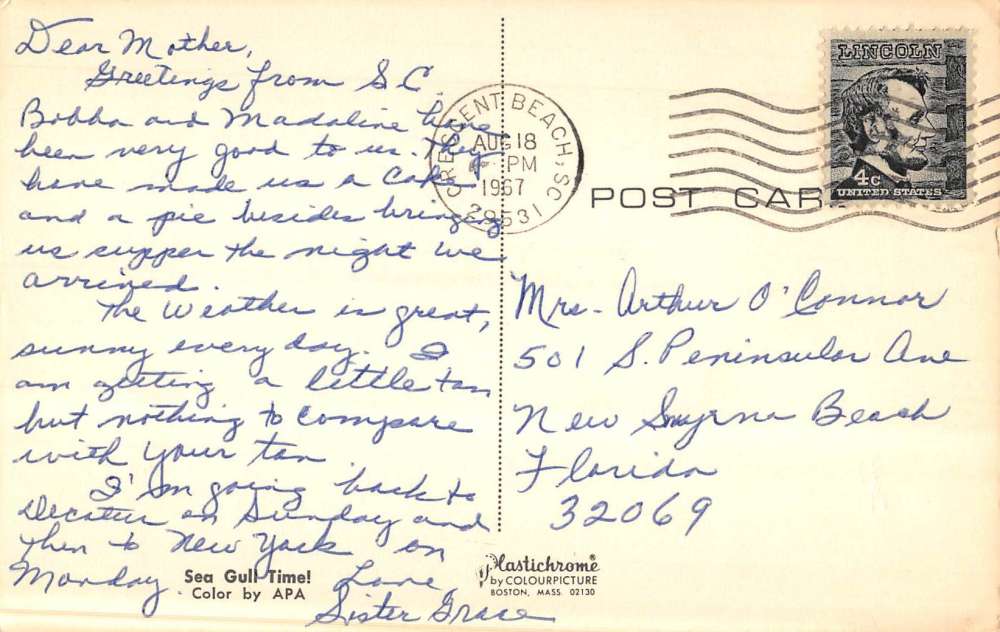 Dear Mother,
Greetings from S.C.
Bobba and Madaline have
been very good to us. They
have made us a Cake
and a pie besides bringing
us supper the night we
arrived.
The Weather is great,
sunny every day. I
am getting a little tan
but nothing to compare
with your tan.
I'm going back to
Decatur on Sunday and
then to New York on
Monday.
Love
Sister Grace
Sea Gull Time!
Color by APA
CRESCENT BEACH, SC
AUG 18
PM
1967
29531
LINCOLN
4c
UNITED STATES
POST CAR
Mrs. Arthur O'Connor
501 S. Peninsular Ave
New Smyrna Beach
Florida
32069
Plastichrome®
by COLOURPICTURE
BOSTON, MASS. 02130